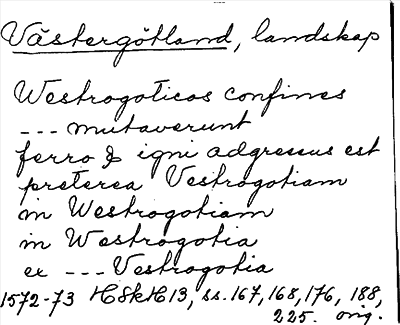 Västergötland, landskap
Westrogoticos confines
--- mutaverunt
ferro & igni adgressus est
preterea Vestrogotiam
in Westrogotiam
in Westrogotia
ex --- Vestrogotia
1572-73 HSkH 13, ss. 167, 168, 176, 188,
225. orig.